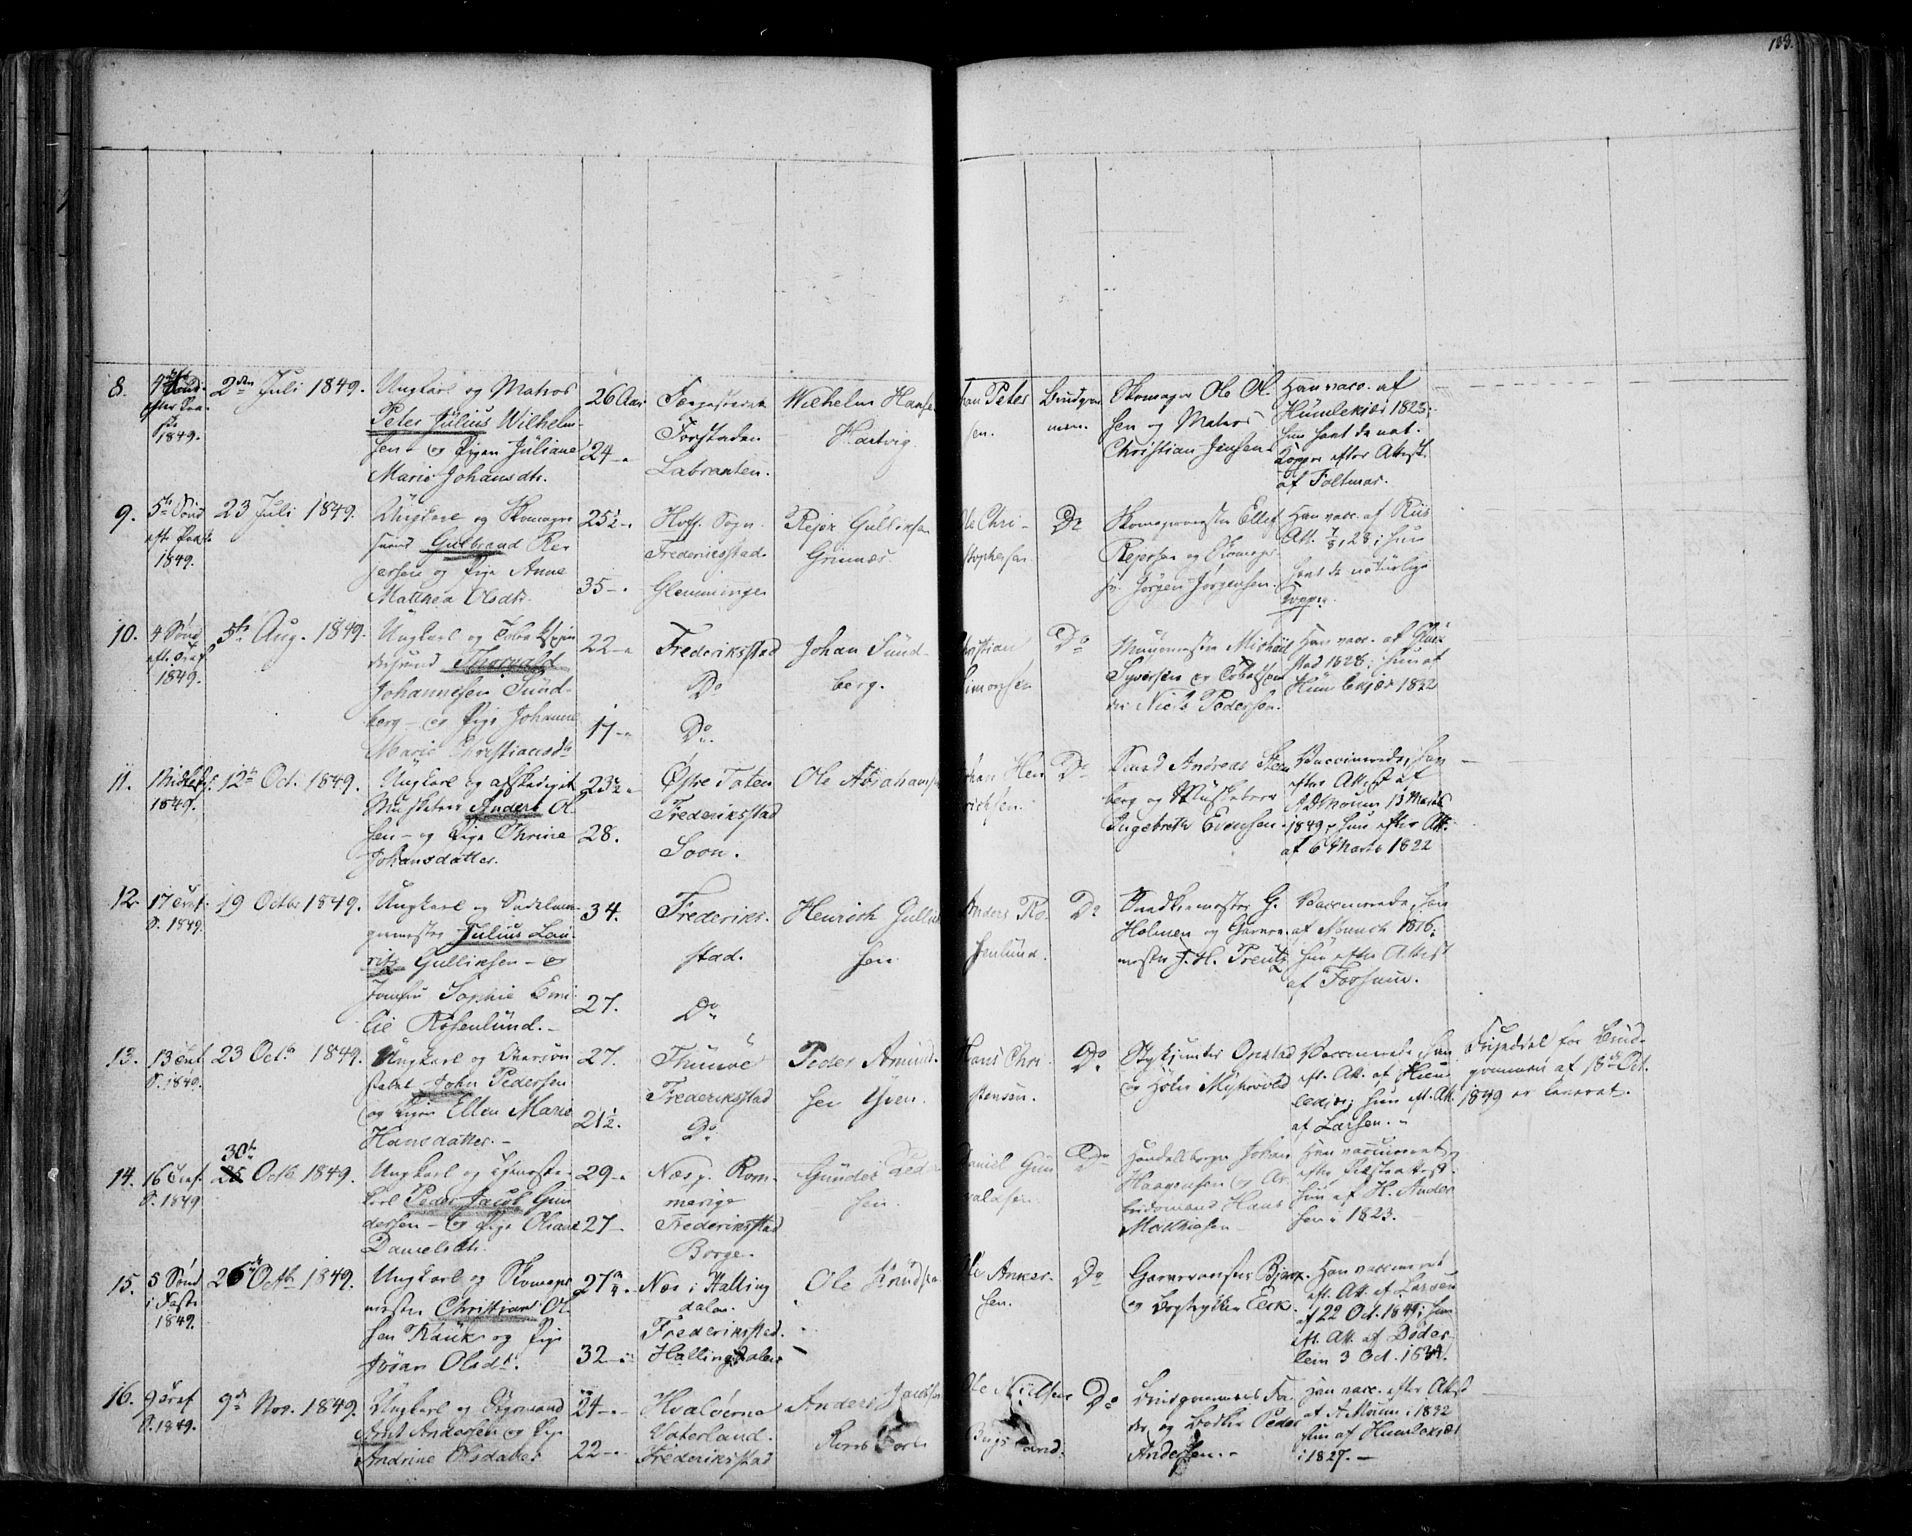 188.
8.
efter
1849.
2den Juli 1849.
Ungkarl og Matros
Peter Julius Wilhelm-
sen – og Pigen Juliane
Marie Johansdtr.
26 Aar
24 –
Forstaden
Labranten.
Wilhelm Hanse
Hartvig
han Peter
sen.
Brudgom
men.
Skomager Ole Ol-
sen og Matros
Christian Jensen
Han vacc. af
Humlekjær 1823;
hun havt de nat.
Kopper efter Attest
af Foltmar.
9.
5te Sønd
eft.
1849.
23 Juli 1849.
Ungkarl og Skomager
svend Gulbrand Rei-
ersen og Pige Anne
Matthea Olsdtr.
25½ –
35 –
Hoff Sogn.
Frederiksstad
Glemminge
Rejer Gulliksen
Grimnæs
Ole Chri-
stophersen
Do
Skomagermester Ellef
Rejersen og Skomager
sv. Jørgen Jørgensen.
Han vacc. af Riis
Att. 7/8, 28; hun
havt de naturlige
Kopper.
10.
4 Sønd
eft. Tref.
1849.
5te Aug. 1849.
Ungkarl og Tobaksspin
dersvend Thorvald
Johannesen Sund-
berg – og Pige Johanne
Marie Christiansdtr
22 –
17 –
Frederiksstad
Do
Do
Johan Sund-
berg.
Christian
Simonsen
Do
Muurmester Michael
Syversen og Tobakspin
der Niels Pedersen.
Han vacc. af Glück
stad 1828; hun af
Humlekjær 1832
11.
Michelsd.
1849.
12te Oct. 1849.
Ungkarl og afskediget
Musketeer Anders Ol-
sen – og Pige Thrine
Johansdatter.
23½ –
28.
Østre Toten
Frederiksstad
Soon.
Ole Abrahams
Johan Hen
richsen.
Do
Svend Andreas Steen
berg og Musketeer
Ingebreth Evensen.
Vaccinerede, han
efter Attest af
A. Moum 13 Marts
1849, hun efter Att.
af 6 Marts 1822
12.
17 Tref.
S. 1849.
19 Octbr 1849.
Ungkarl og Sadelma-
germester Julius Lau-
ritz Gulliksen – og
Jomfru Sophie Emi-
lie Rosenlund. –
34.
27.
Frederiks-
stad.
Do
Henrich Gullik
sen
Anders Ro
senlund.
Do
Snedkermester G.
Holmen og Garver-
mester J. H. Trentz
Vaccinerede, han
af Munch 1816;
hun efter Attest
af Forsman.
13.
13 Tref.
S. 1849.
23 Octb 1849.
Ungkarl og
John Pedersen
og Pigen Ellen Marie
Hansdatter. –
27.
21½.
Thunøe
Frederiksstad
Do
Peder Amund-
sen Yven.
Hans Chri-
stensen.
Do
Stykjunker Onstad
og Myhrvold
Vaccinerede, han
eft. Att. af Hum
lekjær; hun eft. Att.
af Larsen. –
Frieseddel for Brud-
gommen af 18de Oct.
1849 er leveret.
14.
16 Tref.
S. 1849
30te
25 Octb 1849.
Ungkarl og
karl Peder Jacob Gun
dersen – og Pige Oliane
Danielsdtr.
29 –
27 –
Næs p. Rom-
merige
Frederiksstad
Borge.
Gunder Peder
sen.
Daniel Gun
valdsen.
Do
Handelsborger Johan
Haagensen og Ar-
beidsmand Hans
Mathiesen
Han vaccineret
efter Præsteattest.
hun af H. Ander
sen i 1823.
15.
5 Sønd
i Faste
1849.
26de Octb 1849.
Ungkarl og Skomager
mester Christian Ol
sen Rauk og Pige
Jøran Olsdtr.
27
32 –
Næs i Halling
dalen.
Frederiksstad.
Hallingdalen
Ole Knudsen
Ole Anker-
sen.
Do
Garversvend
og Bogtrykker Eeck.
Han vaccineret
eft. Att. af Larsen
af 22 Oct. 1849; hun
eft. Att. af Døder
lein 3 Oct. 1834.
16.
9 Tref
S. 1849.
9de Nov. 1849.
Ungkarl og Bygmand
Arnt Andersen og Pige
Andrine Olsdatter
24 –
22 –
Hvaløerne
Vaterland.
Frederiksstad
Anders Jacobsen
Ole Nielsen
Do
Brudgommens Fa-
der og Bødker Peder
Andersen. –
Han vacc. efter Attest
af A Moum i 1832
hun af Humlekjær
i 1827. –